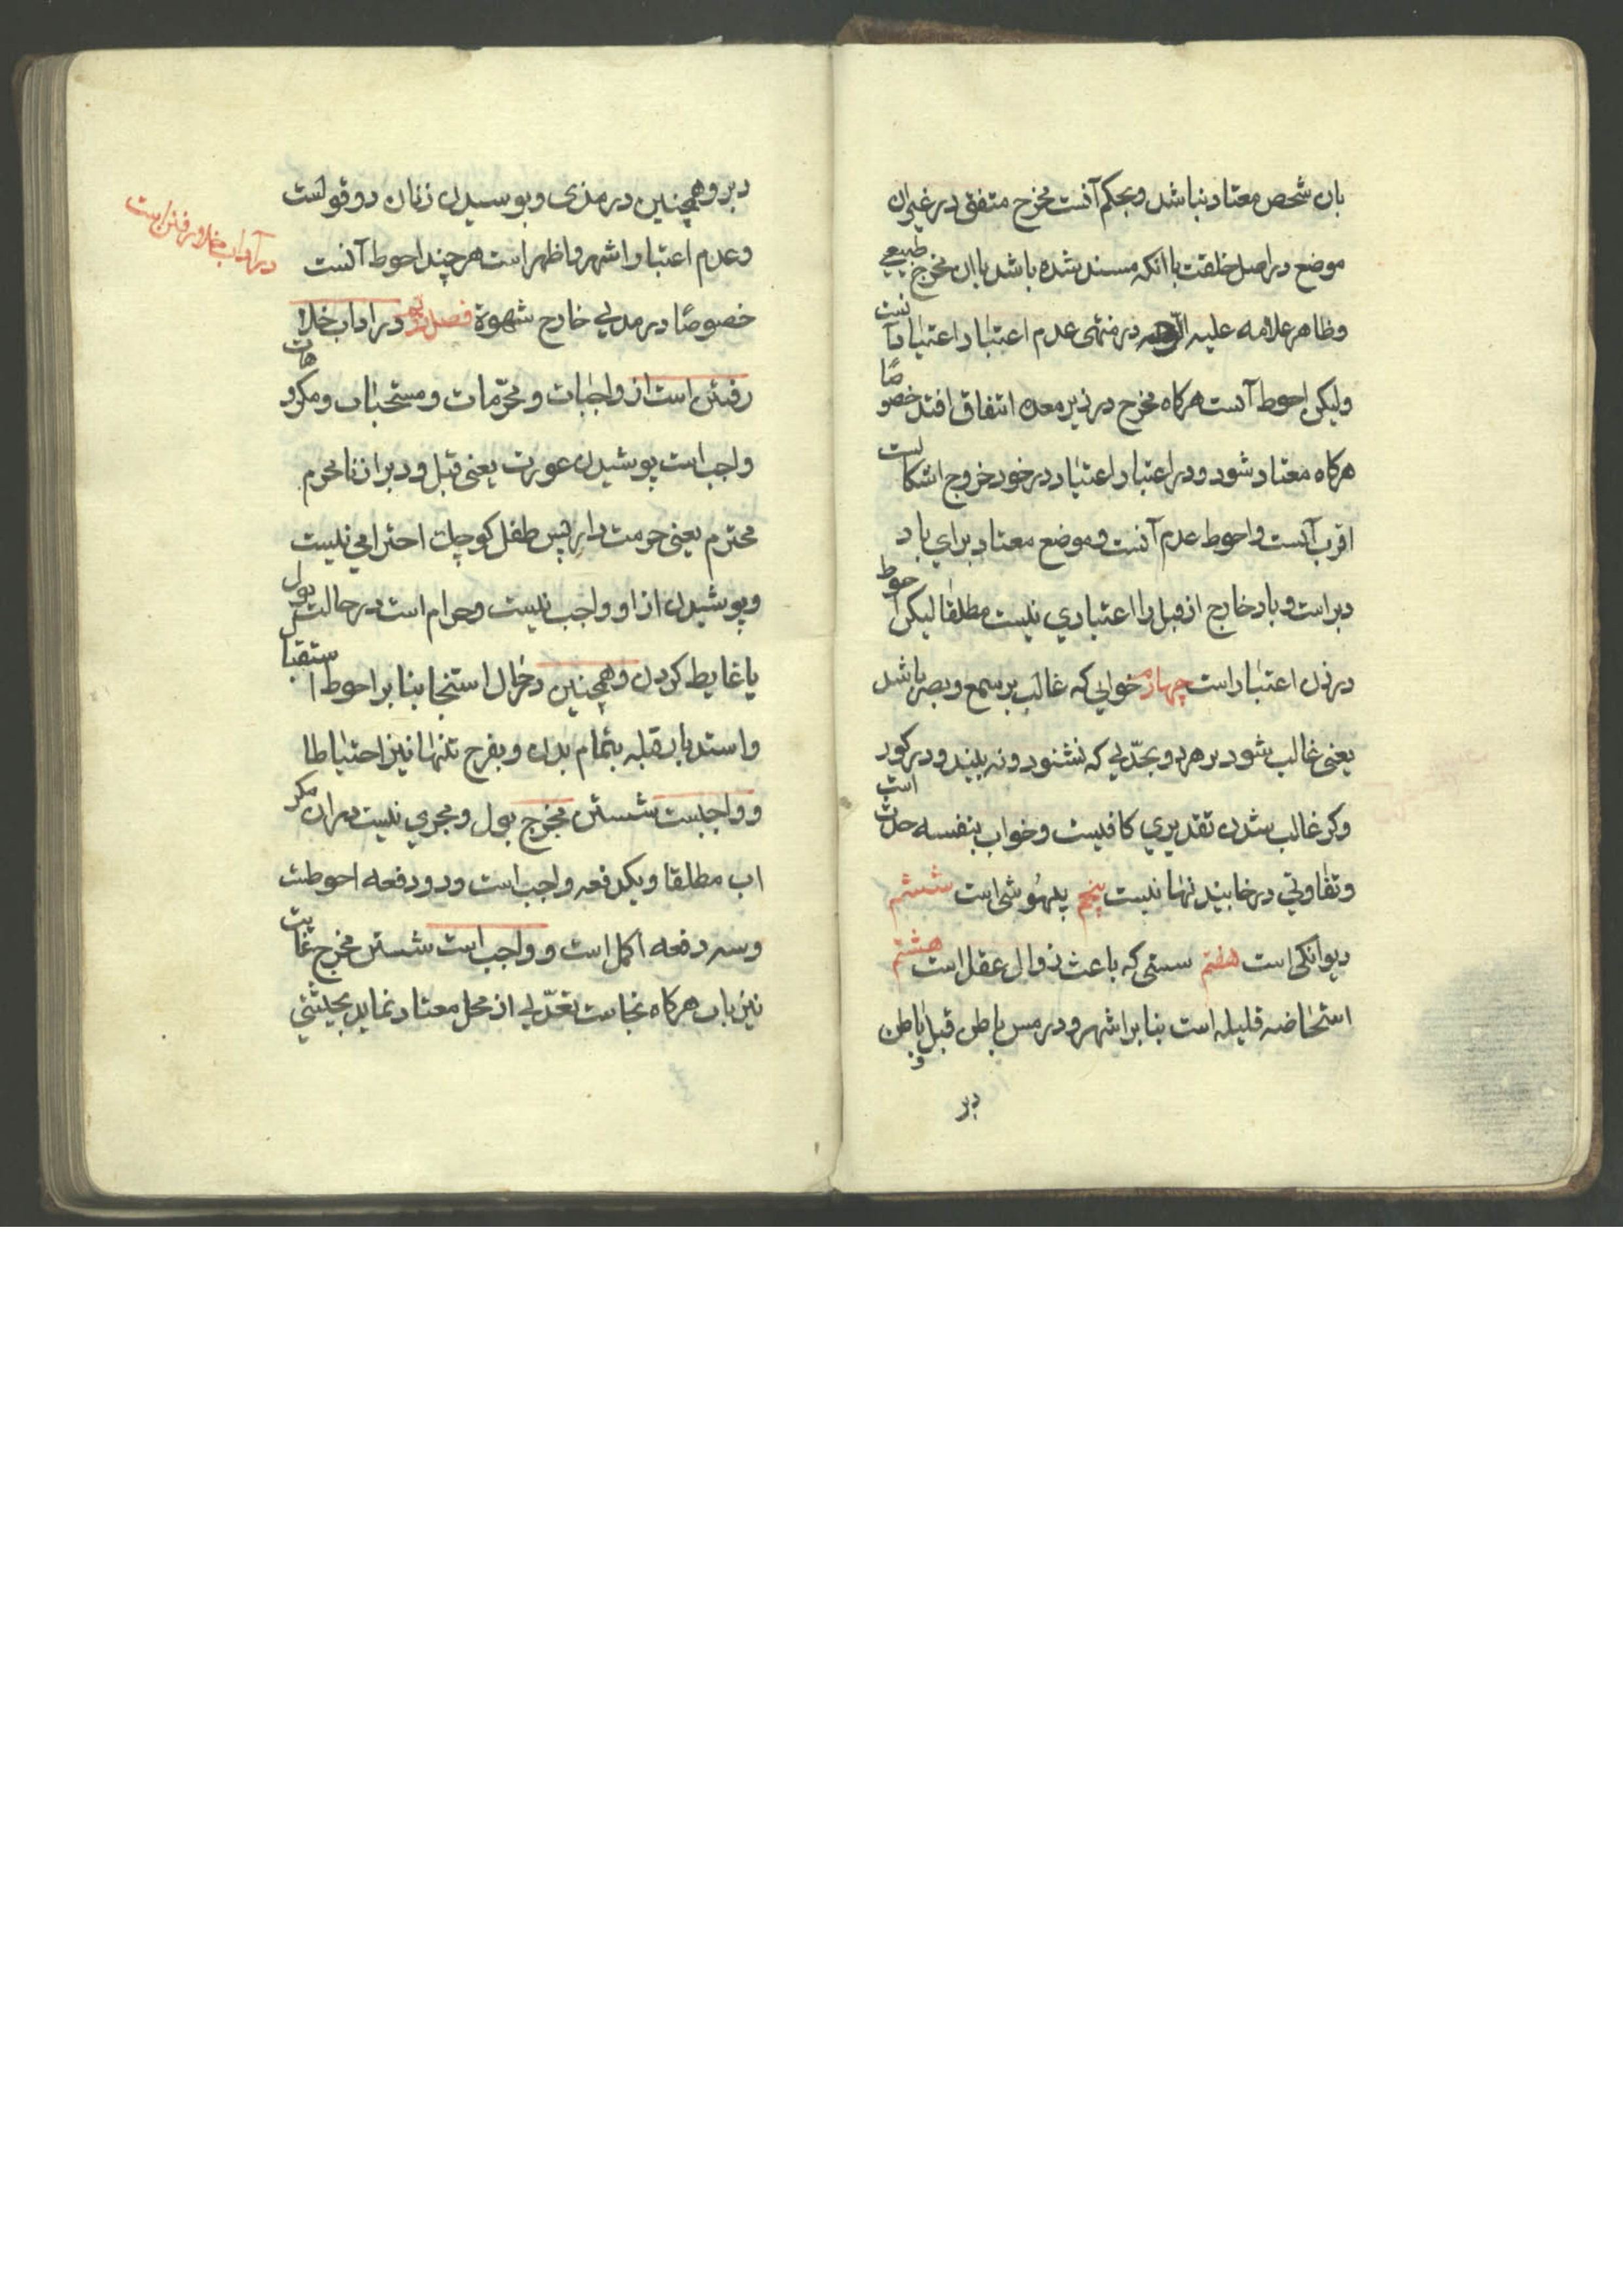 بان شخص معتاد نباشد و بحکم آنست مخرج متفق در غیر ان
موضع در اصل خلقت با انکه مسند شده باشد باان مخرج طبیعی
و ظاهر علامه علیه در منتهی عدم اعتبار اعتیاد آنست
و لیکن احوط آنست هرکاه مخرج در زیر معده اتفاق افتد خصوصًا
هرکاه معتاد شود و در اعتبار اعتیاد در خود خروج اشکالست
اقرب آنست و احوط عدم آنست و موضع معتاد برای باد
دبر است و باد خارج از قبل را اعتباری نیست مطلقا لیکن احوط
در زن اعتبار است چهارم خوابی که غالب بر سمع و بصر باشد
یعنی غالب شود بر هر دو بحدّی که نشنود و نه بیند و در کور
و کر غالب شدن تقدیری کافیست و خواب بنفسه حدث است
و تفاوتی در خابیدنها نیست پنجم بیهوشی است ششم
دیوانکی است هفتم مستی که باعث زوال عقل است هشتم
استحاضه قلیله است بنابر اشهر و در مس باطن قبل و باطن
دبر
دبر و همچنین در مذی و بوسیدن زنان دو قولست
و عدم اعتبار اشهر و اظهر است هر چند احوط آنست
خصوصًا در مذیی خارج شهوة فصل در اداب خلا
رفتن است از واجبات و محرّمات و مستحبات و مکروهات
واجب است پوشیدن عورت یعنی قبل و دبر از نامحرم
محترم یعنی حرمت دار پس طفل کوچک احترامی نیست
و پوشیدن از او واجب نیست و حرام است در حالت بول
یا غایط کردن و همچنین در حال استنجا بنابر احوط استقبال
و استدبار قبله بتمام بدن و بفرج تنها نیز احتیاطا
و واجبست شستن مخرج بول و مجزی نیست در ان مکر
اب مطلقا و یکدفعه واجب است و دو دفعه احوطست
و سه دفعه اکمل است و واجب است شستن مخرج غایت
نیز باب هرکاه نجاست تعدّی از محل معتاد نماید بحیثتی
در آداب خلا رفتن است